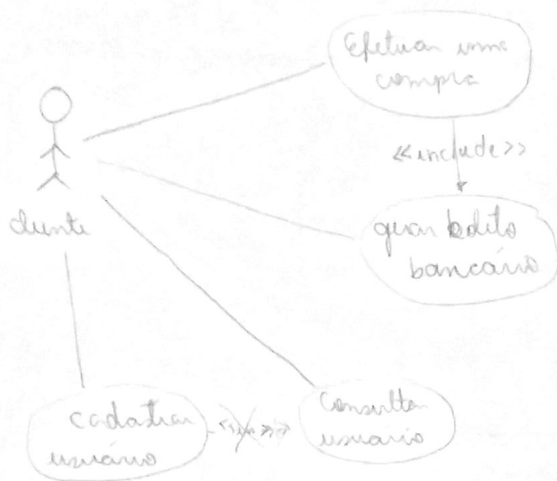 Efetuar uma
compra
<<include>>
cliente
gerar boleto
bancário
cadastrar
usuário
Consultar
usuário